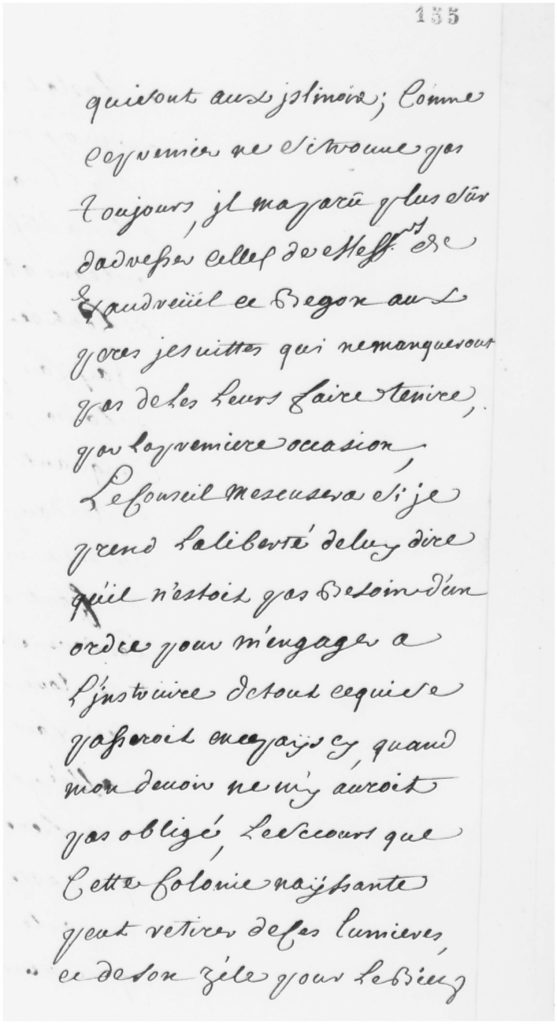 135
quivont aux jslinois; Comme
cepremier ne sitrouue pas
toujours, jl maparû plus sûr
dadresser celles de Mess.rs de
Vaudreüil et Begon aux
peres jesuittes qui nemanqueront
pas deles Leurs faire tenire,
par lapremiere occasion,
Le Conseil mescusera si je
prend Laliberté deluy dire
qu'il n'estoit pas Besoin d'un
ordre pour m'engager a
L'jnstruire detout cequise
passeroit encepaÿs cy, quand
mon devoir ne m'y auroit
pas obligé, Lesecours que
Cette Colonie naÿssante
peut retirer deses lumieres,
et deson zéle pour LeBien